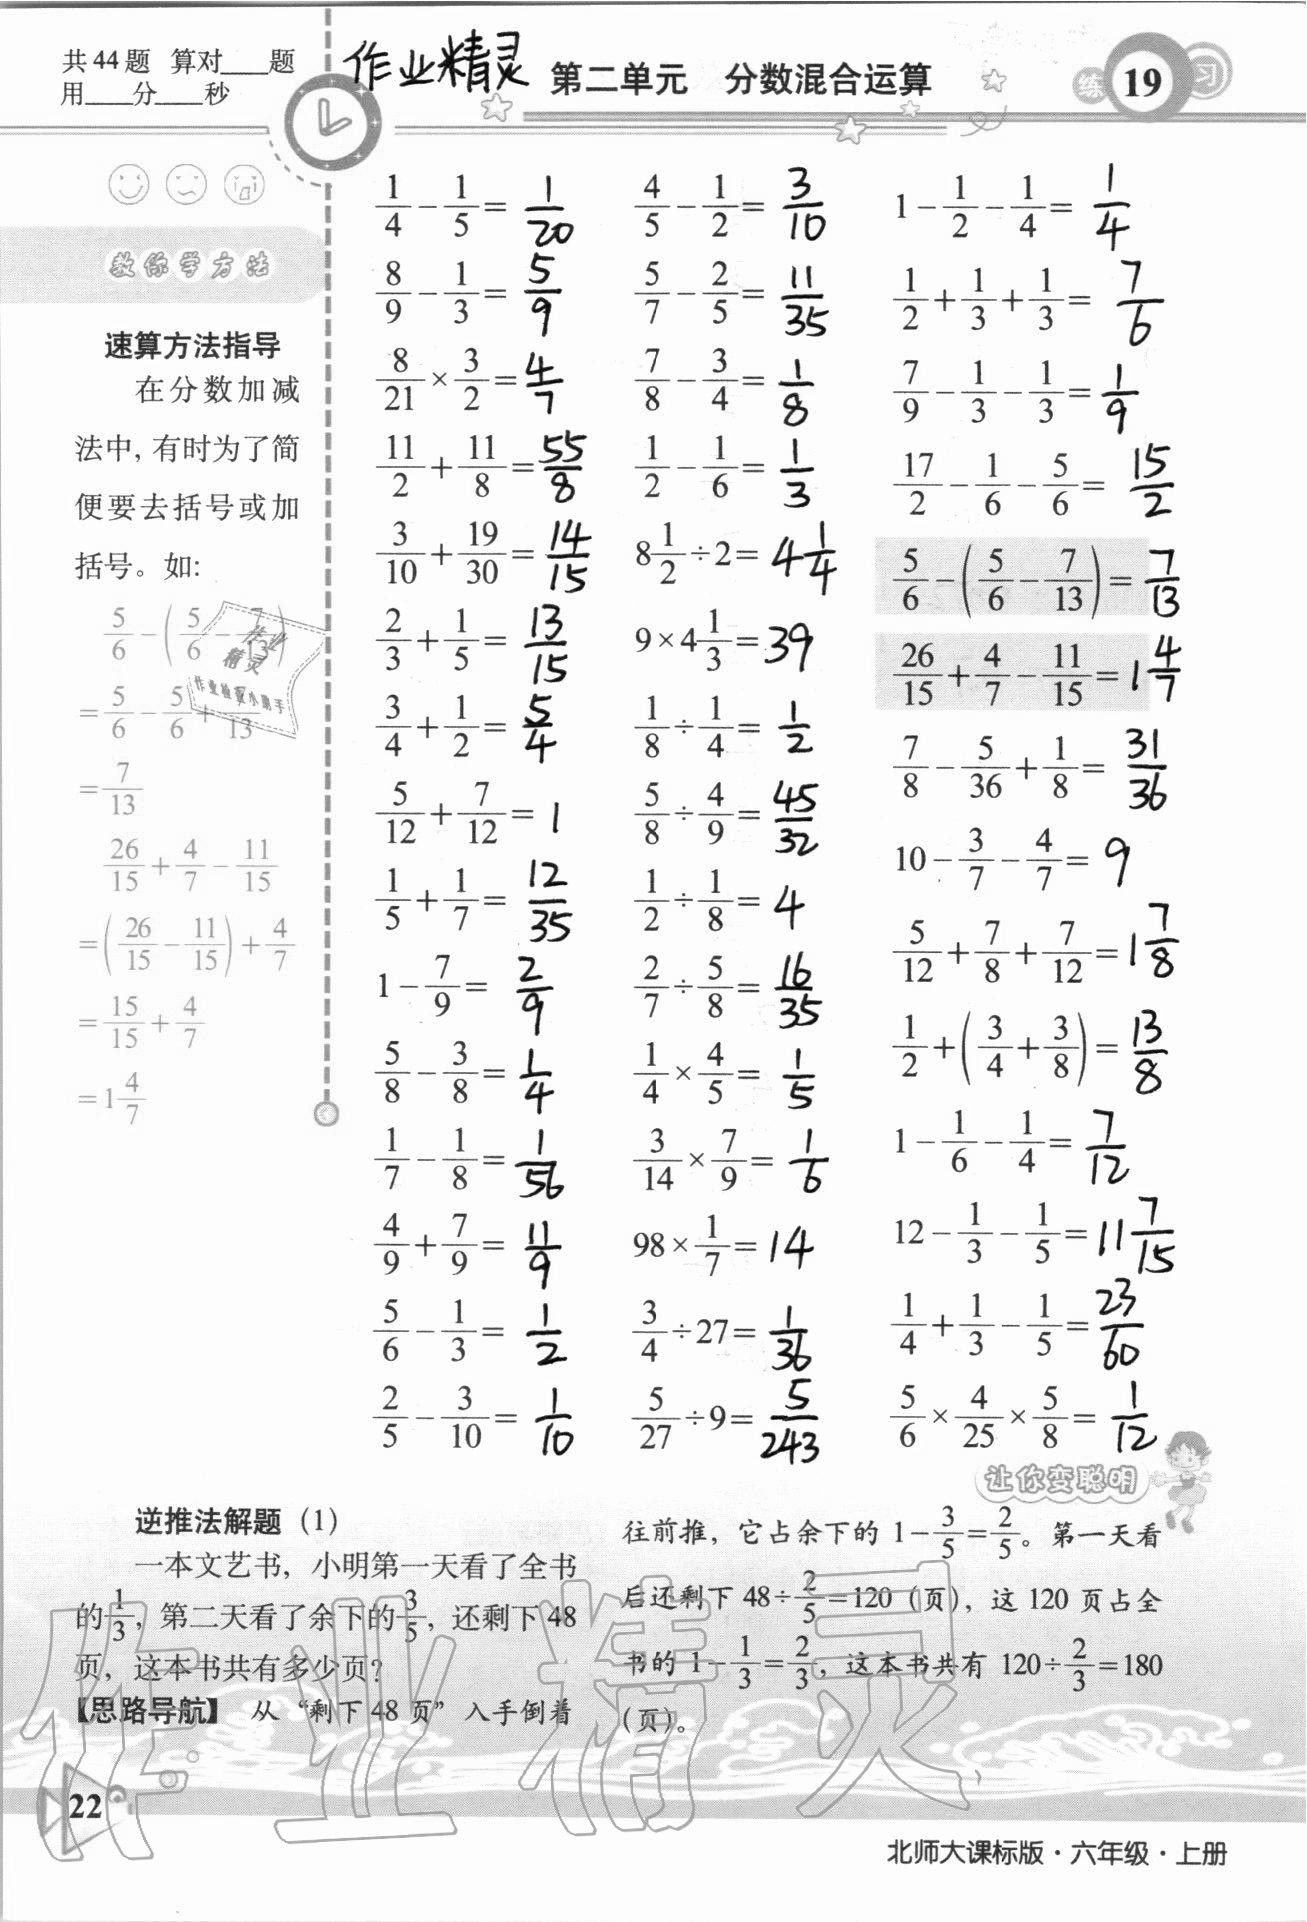 共44题 算对____题
用____分____秒
作业精灵
第二单元 分数混合运算
练 19 习
教你学方法
速算方法指导
在分数加减
法中,有时为了简
便要去括号或加
括号。如:
5/6-(5/6-7/13)
=5/6-5/6+7/13
=7/13
26/15+4/7-11/15
=(26/15-11/15)+4/7
=15/15+4/7
=1 4/7
作业
精灵
作业检查小助手
1/4-1/5= 1/20
8/9-1/3= 5/9
8/21×3/2= 4/7
11/2+11/8= 55/8
3/10+19/30= 14/15
2/3+1/5= 13/15
3/4+1/2= 5/4
5/12+7/12= 1
1/5+1/7= 12/35
1-7/9= 2/9
5/8-3/8= 1/4
1/7-1/8= 1/56
4/9+7/9= 11/9
5/6-1/3= 1/2
2/5-3/10= 1/10
4/5-1/2= 3/10
5/7-2/5= 11/35
7/8-3/4= 1/8
1/2-1/6= 1/3
8 1/2÷2= 4 1/4
9×4 1/3= 39
1/8÷1/4= 1/2
5/8÷4/9= 45/32
1/2÷1/8= 4
2/7÷5/8= 16/35
1/4×4/5= 1/5
3/14×7/9= 1/6
98×1/7= 14
3/4÷27= 1/36
5/27÷9= 5/243
1-1/2-1/4= 1/4
1/2+1/3+1/3= 7/6
7/9-1/3-1/3= 1/9
17/2-1/6-5/6= 15/2
5/6-(5/6-7/13)= 7/13
26/15+4/7-11/15= 1 4/7
7/8-5/36+1/8= 31/36
10-3/7-4/7= 9
5/12+7/8+7/12= 1 7/8
1/2+(3/4+3/8)= 13/8
1-1/6-1/4= 7/12
12-1/3-1/5= 11 7/15
1/4+1/3-1/5= 23/60
5/6×4/25×5/8= 1/12
让你变聪明
逆推法解题(1)
一本文艺书,小明第一天看了全书
的1/3,第二天看了余下的3/5,还剩下48
页,这本书共有多少页?
【思路导航】 从“剩下48页”入手倒着
往前推,它占余下的1-3/5=2/5。第一天看
后还剩下48÷2/5=120(页),这120页占全
书的1-1/3=2/3,这本书共有120÷2/3=180
(页)。
作业精灵
22
北师大课标版·六年级·上册